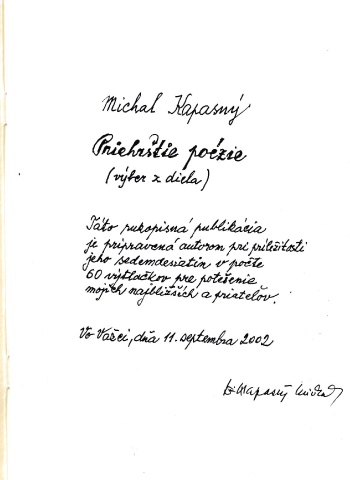 Michal Kapasný
Priehrštie poézie
(výber z diela)
Táto rukopisná publikácia
je pripravená autorom pri príležitosti
jeho sedemdesiatin v počte
60 výtlačkov pre potešenie
mojich najbližších a priateľov.
Vo Važci, dňa 11. septembra 2002
Kapasný